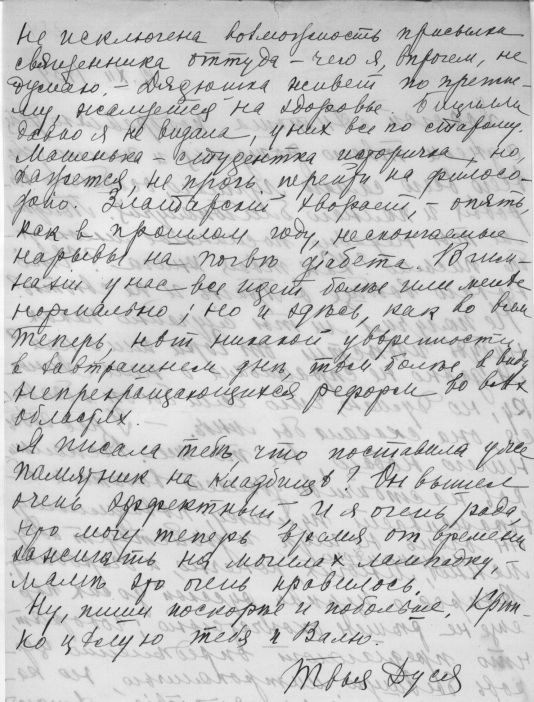 не исключена возможность присылки
священника оттуда – чего я, впрочем, не
думаю. – Дядюшка живет по прежне-
му, жалуется на здоровье. В
давно я не видала, у них все по старому.
Машенька – студентка историчка, но,
кажется, не прочь перейти на филосо-
фию. Златарскiй хвораетъ, – опять,
как в прошлом году, нескончаемые
нарывы на почвѣ дiабета. В гим-
назiи у нас все идет болѣе или менѣе
нормально; но и здѣсь, как во всем
теперь, нѣт никакой увѣренности
в завтрашнем днѣ, тѣм болѣе в виду
непрекращающихся реформ во всѣх
областях.
Я писала тебѣ, что поставила уже
памятник на кладбищѣ? Он вышел
очень эффектный, и я очень рада
что могу теперь время от времени
зажигать на могилах лампадку,
мамѣ это очень нравилось.
Ну, пиши поскорѣе и побольше. Крѣп-
ко цѣлую тебя и Валю.
Твоя Дуся